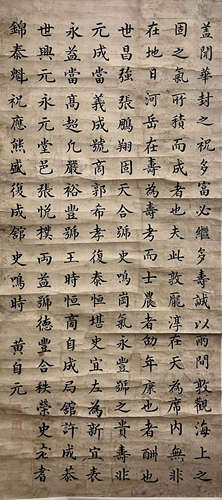 蓋聞華封之祝多富必繼多壽觀海上之
固之氣所積而成者也夫此敦龐淳在天為席內無非
在地日河岳在壽為壽考而士農者劭年康也者酬也
世昌強張鵬翔固天合號史鳴岡氣永豐號之貴壽非
元成當義成號商郭希孝復泰恒堪史宜左為新宜表
永益當高起凡嚴裕豐號王時恒商自成局館許成恭
世興元永堂邑張悅撲兩益號德豐合秩榮史者
錦泰魁祝應熊盛復成館史鳴時黃自元